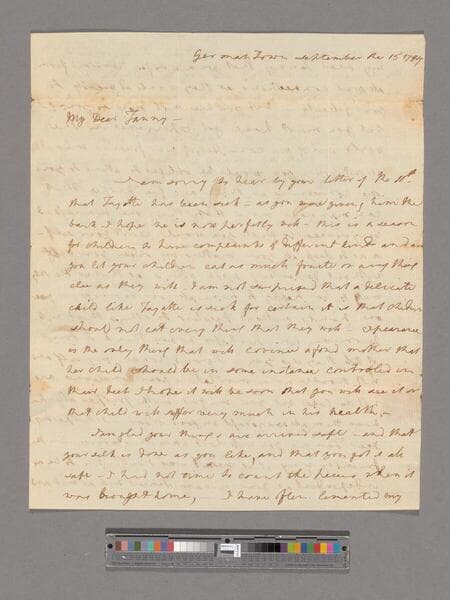 German Town September the 15th 1794
My Dear Fanny—
I am sorry to hear by your letter of the 10th
that Fayette has been sick – as you was giveing him the
bark I hope he is now perfectly well – this is a season
for children to have complaints of different kinds and as
you let your children eat as much fruite or any thing
else as they will I am not surprised that a delicate
child like Fayette is sick for certain it is that children
should not eat every thing that they will
is the only thing that will convince a fond mother that
her child should be in some instance controled in
their diet I hope it will be soon that you will see it or
that child will suffer very much in his health,—
I am glad your things are arrived safe – and that
your silk is done as you like, and that you got it all
safe – I had not time to count the peices when it
was brought home, I have often lamented my